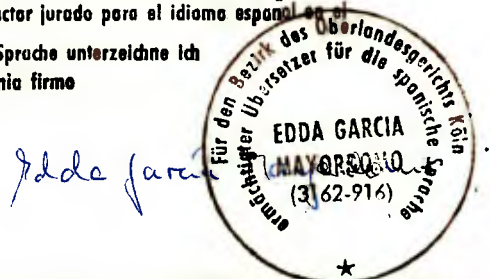 actor jurado para el idioma español en el
Sprache unterzeichne ich
mia firmo
Für den Bezirk des Oberlandesgerichts Köln
ermächtigter Übersetzer für die spanische Sprache
EDDA GARCIA
MAYORDOMO
(3162-916)
Edda Garcia